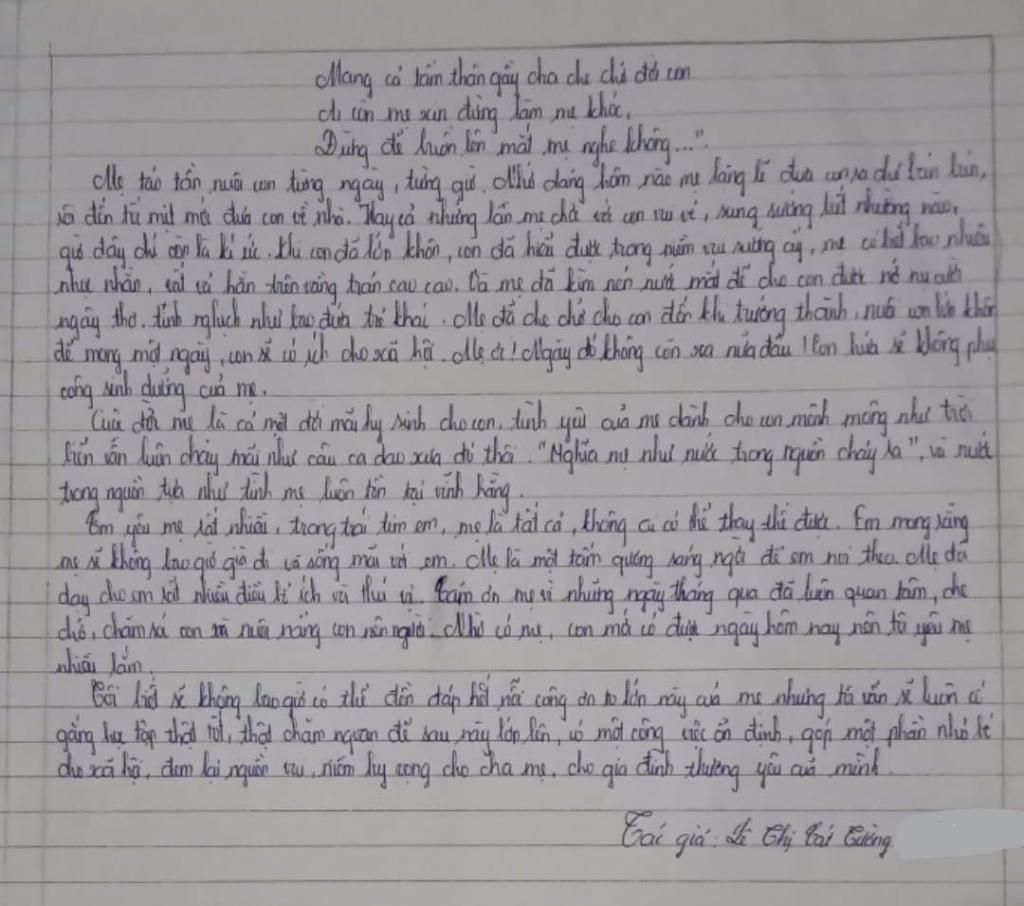 Mang cả tấm thân gầy cha che chở đời con
Ai còn mẹ xin đừng làm mẹ khóc,
Đừng để buồn lên mắt mẹ nghe không..."
Mẹ tảo tần nuôi con từng ngày, từng giờ. Nhớ dáng hôm nào mẹ lặng lẽ đưa con ra
rồi đến từ mít mới đưa con về nhà. Hay cả những lần mẹ chờ với con vui vẻ, sung sướng biết nhường nào,
giờ đây chỉ còn là kí ức. Khi con đã lớn khôn, con đã hiểu được trong niềm vui sướng ấy, mẹ có biết bao nhiêu
nhọc nhằn, vất vả hằn trên vầng trán cao cao. Và mẹ đã kìm nén nước mắt để cho con được nở nụ cười
ngây thơ, tinh nghịch như bao đứa trẻ khác. Mẹ đã che chở cho con đến khi trưởng thành, nuôi con lớn khôn
để mong một ngày, con sẽ có ích cho xã hội. Mẹ ơi! Ngày đó không còn xa nữa đâu! Con hứa sẽ không phụ
công sinh dưỡng của mẹ.
Cuộc đời mẹ là cả một đời mãi hy sinh cho con, tình yêu của mẹ dành cho con mênh mông như trời
biển vẫn luôn chảy mãi như câu ca dao xưa đó thôi. "Nghĩa mẹ như nước trong nguồn chảy ra", và nước
trong nguồn tựa như tình mẹ luôn tồn tại vĩnh hằng.
Em yêu mẹ rất nhiều, trong trái tim em, mẹ là tất cả, không ai có thể thay thế được. Em mong rằng
mẹ sẽ không bao giờ già đi và sống mãi với em. Mẹ là một tấm gương sáng ngời để em noi theo. Mẹ đã
dạy cho em rất nhiều điều bổ ích và thú vị. Cảm ơn mẹ vì những ngày tháng qua đã luôn quan tâm, che
chở, chăm sóc con và nuôi nấng con nên người. Nhờ có mẹ, con mới có được ngày hôm nay nên tôi yêu mẹ
nhiều lắm.
Tôi biết sẽ không bao giờ có thể đền đáp hết nỗi công ơn to lớn này của mẹ nhưng tôi vẫn sẽ luôn cố
gắng học tập thật tốt, thật chăm ngoan để sau này lớn lên, có một công việc ổn định, góp một phần nhỏ bé
cho xã hội, đem lại nguồn vui, niềm hy vọng cho cha mẹ, cho gia đình thương yêu của mình.
Tác giả: Lê Thị Cát Tường